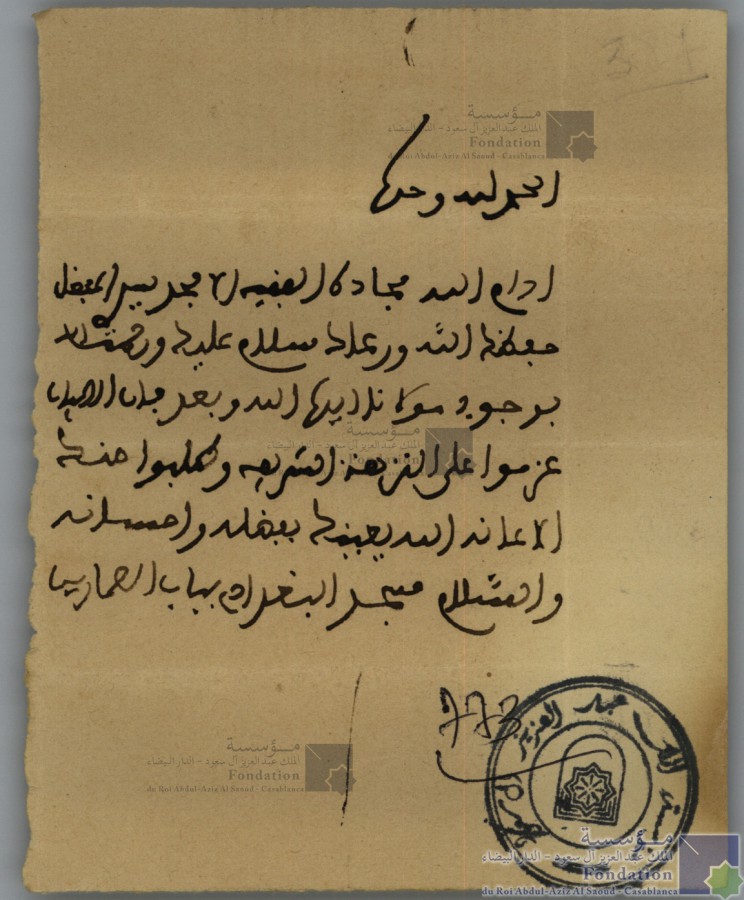 مؤسسة
الملك عبد العزيز آل سعود - الدار البيضاء
Fondation
du Roi Abdul-Aziz Al Saoud - Casablanca
الحمد لله وحده
ادام الله مجادة الفقيه الامجد سي المفضل
حفظك الله ورعاك سلام عليك ورحمت الله
بوجود مولانا ايده الله وبعد فان
مؤسسة
الملك عبد العزيز آل سعود - الدار البيضاء
Fondation
عزموا على النزهة الشريفة وطلبوا منك
الاعانه الله يعينك بفضله واحسانه
والسلام مسجد بباب
773
عبد العزيز
مؤسسة
الملك عبد العزيز آل سعود - الدار البيضاء
Fondation
du Roi Abdul-Aziz Al Saoud - Casablanca
مؤسسة
الملك عبد العزيز آل سعود - الدار البيضاء
Fondation
du Roi Abdul-Aziz Al Saoud - Casablanca